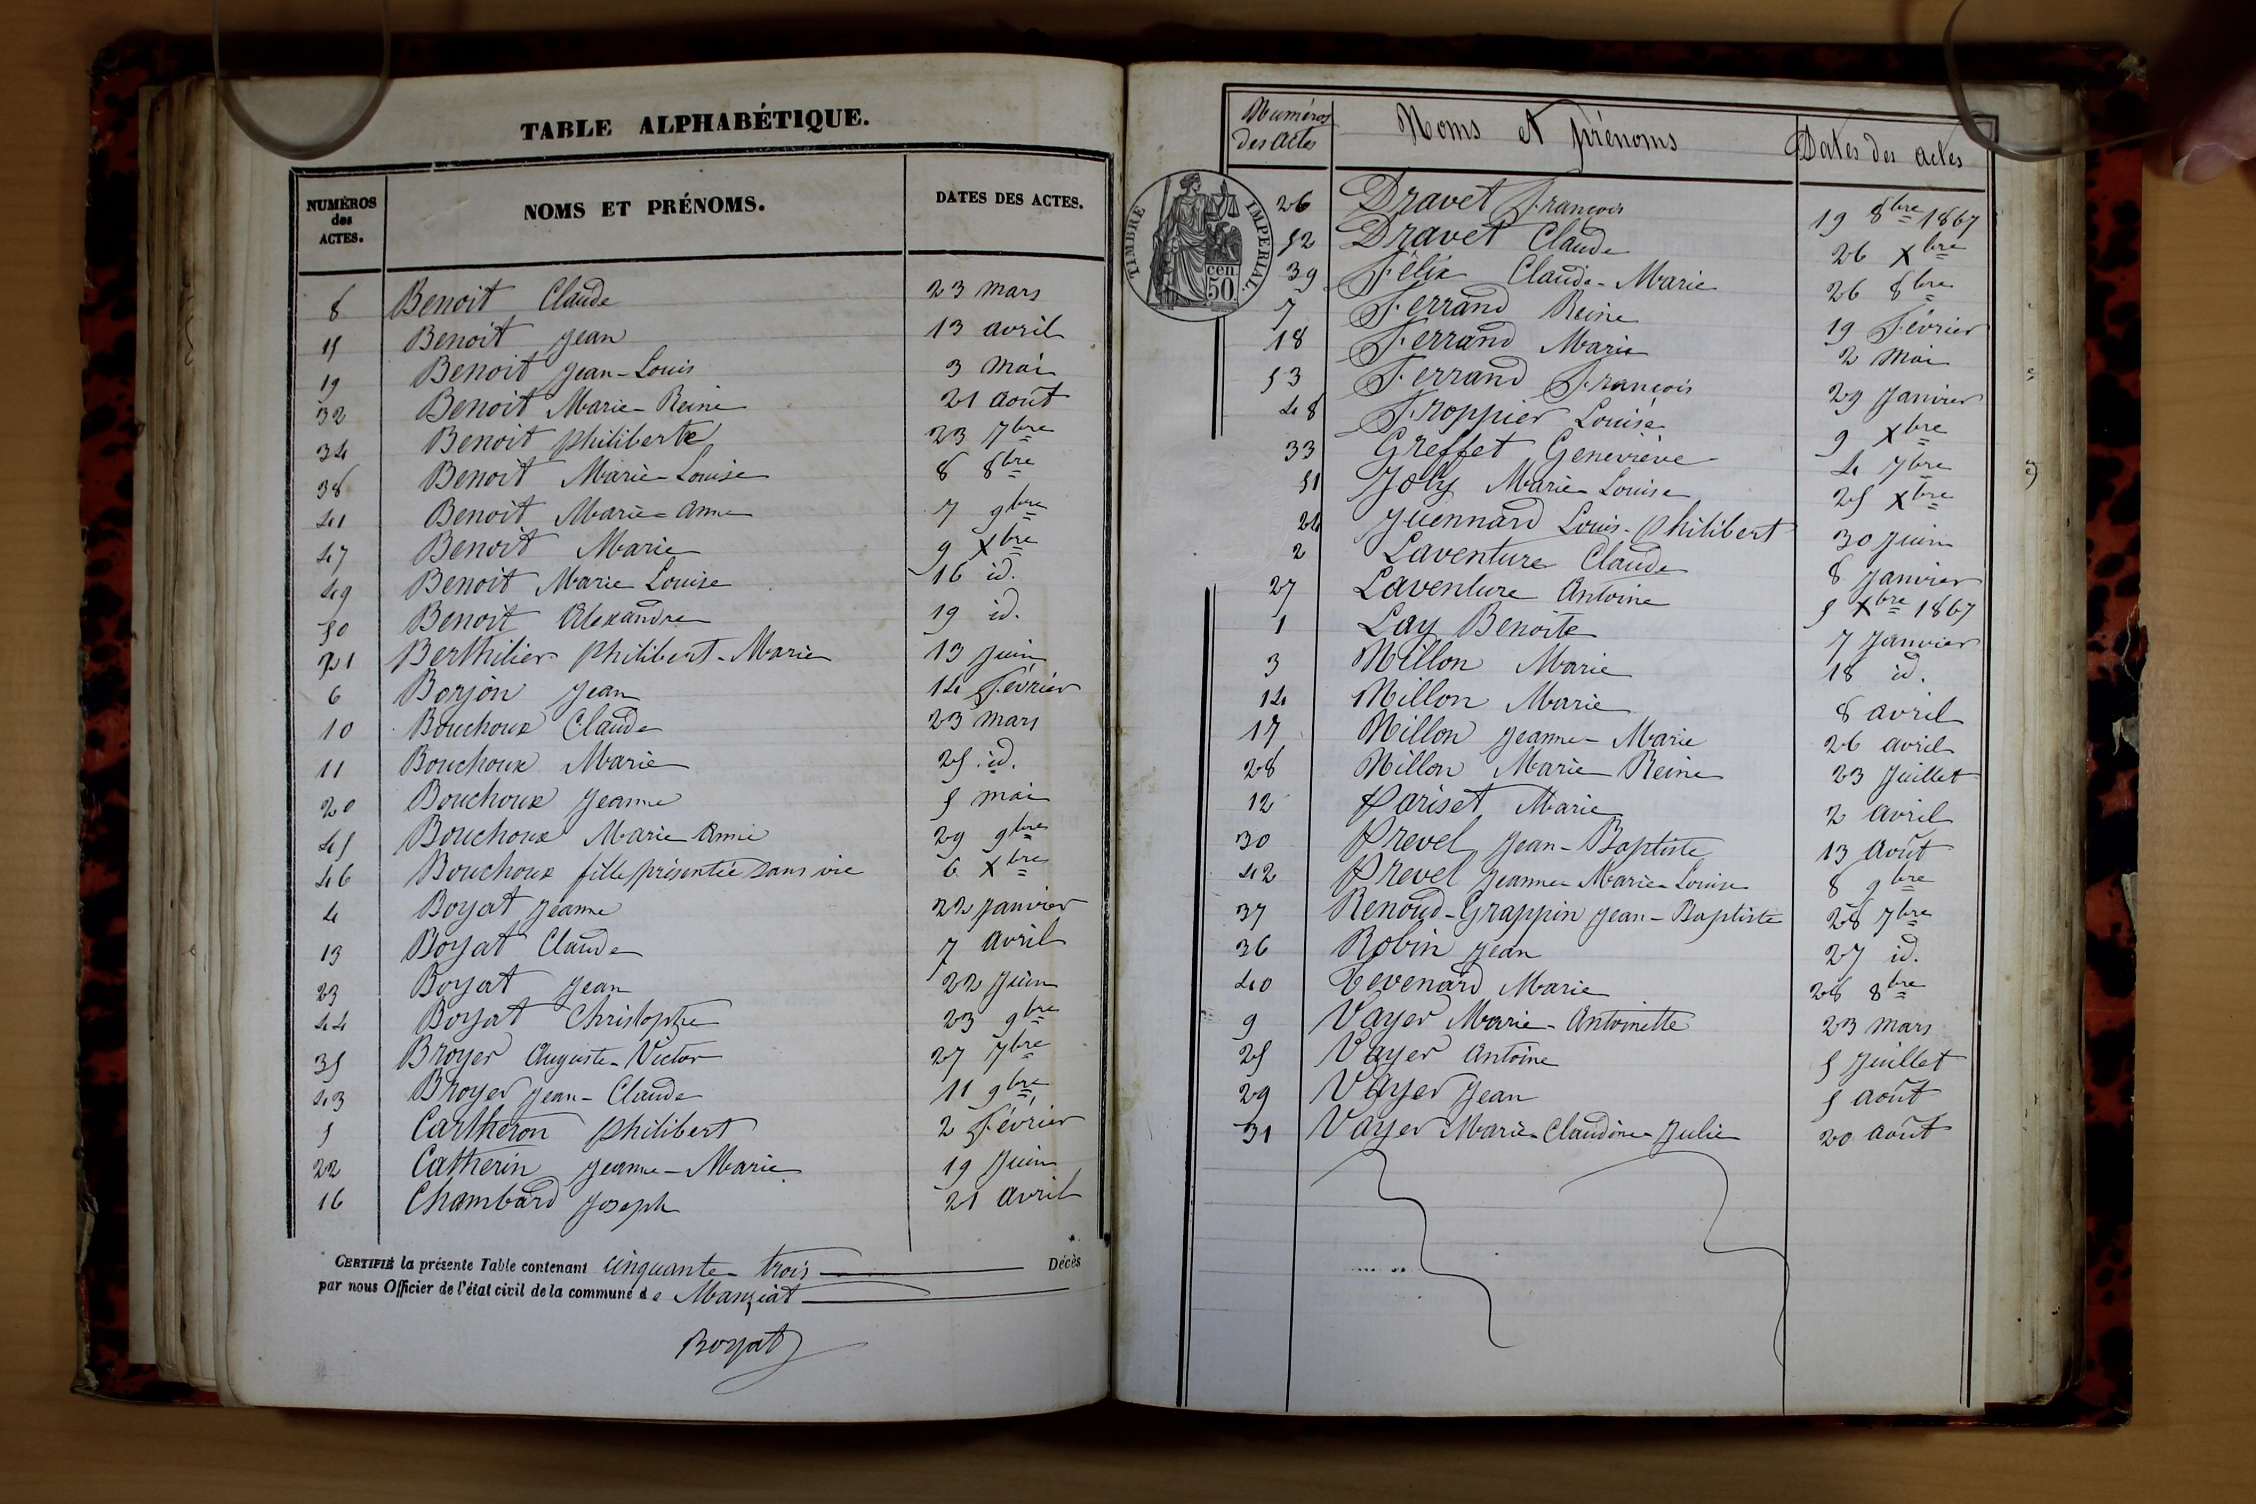 TABLE ALPHABÉTIQUE.
NUMÉROS des ACTES. NOMS ET PRÉNOMS. DATES DES ACTES.
8 Benoit Claude 23 mars
15 Benoit Jean 13 avril
19 Benoit Jean-Louis 3 mai
32 Benoit Marie-Reine 21 août
34 Benoit Philiberte 23 7bre
38 Benoit Marie-Louise 8 8bre
41 Benoit Marie-Anne 7 9bre
47 Benoit Marie 9 Xbre
49 Benoit Marie Louise 16 id.
50 Benoit Alexandre 19 id.
21 Berthilier Philibert-Marie 13 juin
6 Borjon Jean 14 Février
10 Bouchoux Claude 23 mars
11 Bouchoux Marie 25 id.
20 Bouchoux Jeanne 5 mai
45 Bouchoux Marie 29 9bre
46 Bouchoux fille présentée sans vie 6 Xbre
4 Boyat Jeanne 22 janvier
13 Boyat Claude 7 avril
23 Boyat Jean 22 juin
44 Boyat Christophe 23 9bre
35 Broyer Auguste-Victor 27 7bre
43 Broyer Jean-Claude 11 9bre
5 Cartheron Philibert 2 Février
22 Catherin Jeanne-Marie 19 juin
16 Chambard Joseph 21 avril
CERTIFIÉ la présente Table contenant cinquante-trois Décès
par nous Officier de l'état civil de la commune de Manziat
Boyat
Numéros des actes Noms et prénoms Dates des actes
TIMBRE IMPERIAL
50 cen
26 Dravet François 19 8bre 1867
52 Dravet Claude 26 Xbre
39 Félix Claude-Marie 26 8bre
7 Ferrand Reine 19 Février
18 Ferrand Marie 2 mai
53 Ferrand François 29 janvier
48 Froppier Louise 9 Xbre
33 Greffet Geneviève 4 7bre
51 Joly Marie-Louise 25 Xbre
24 Juennard Louis-Philibert 30 juin
2 Laventure Claude 8 janvier
27 Laventure Antoine 5 Xbre 1867
1 Lay Benoite 7 janvier
3 Millon Marie 18 id.
14 Millon Marie 8 avril
17 Millon Jeanne-Marie 26 avril
28 Millon Marie-Reine 23 juillet
12 Pariset Marie 2 avril
30 Prevel Jean-Baptiste 13 août
42 Prevel Jeanne-Marie-Louise 8 9bre
37 Renoud-Grappin Jean-Baptiste 28 7bre
36 Robin Jean 27 id.
40 Tevenard Marie 28 8bre
9 Vayer Marie-Antoinette 23 mars
25 Vayer Antoine 5 juillet
29 Vayer Jean 5 août
31 Vayer Marie-Claudine-Julie 20 août